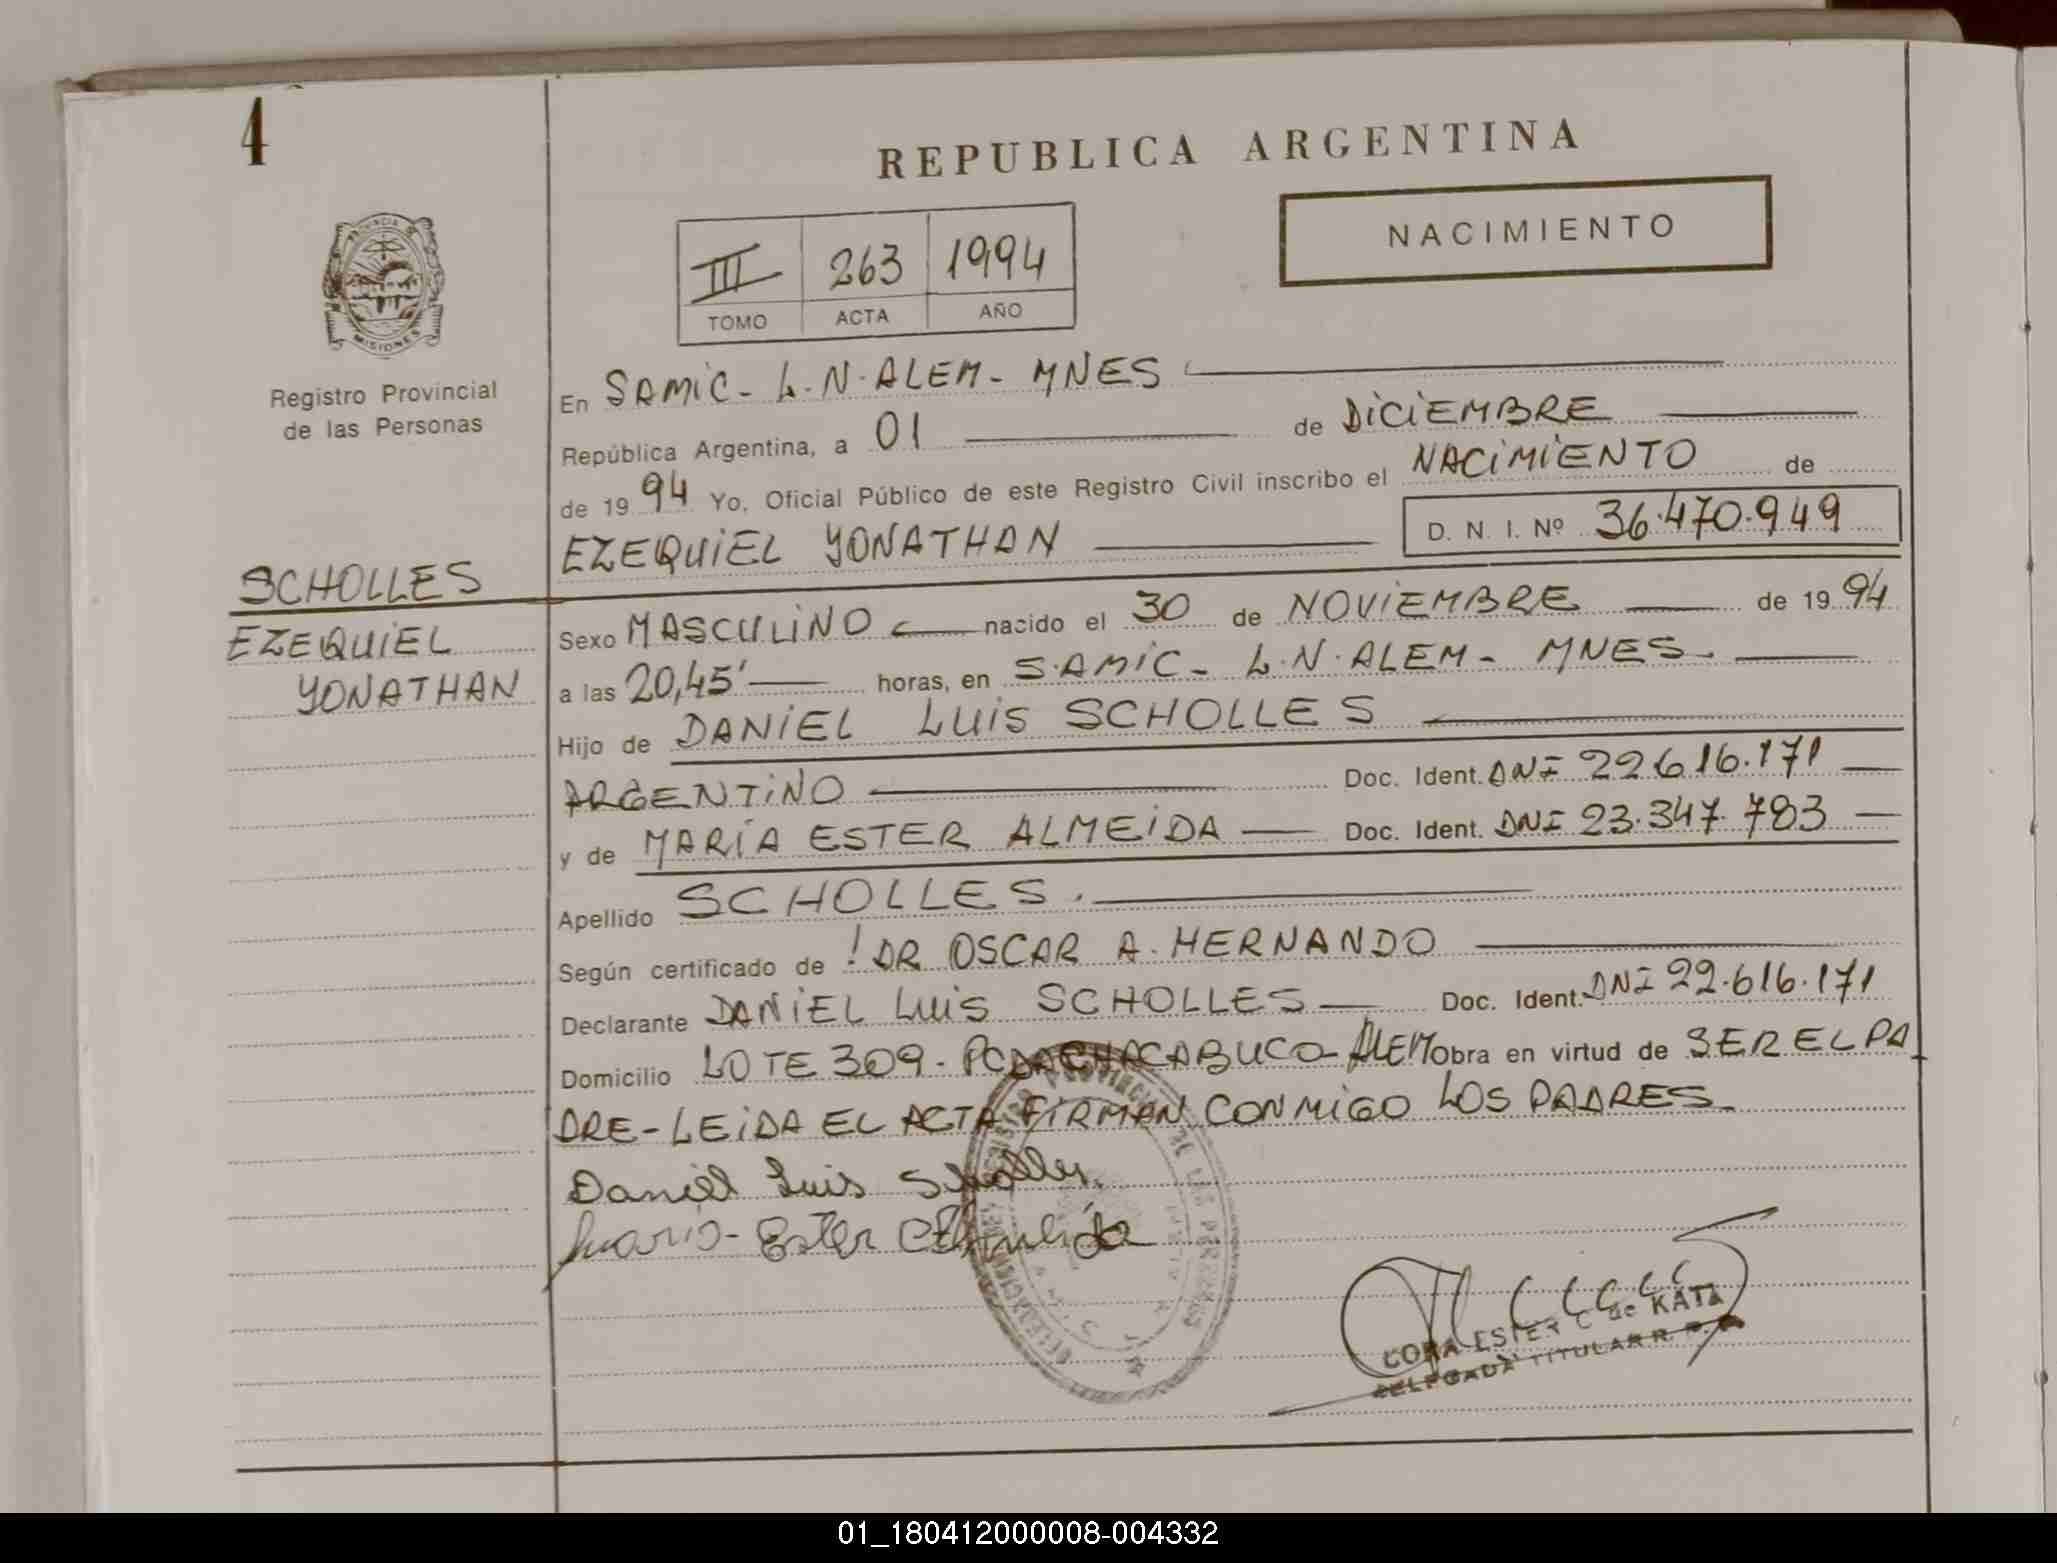 4
REPUBLICA ARGENTINA
NACIMIENTO
III 263 1994
TOMO ACTA AÑO
PROVINCIA DE MISIONES
Registro Provincial
de las Personas
En SAMIC - L.N. ALEM - MNES
República Argentina, a 01 de DICIEMBRE
de 1994 Yo, Oficial Público de este Registro Civil inscribo el NACIMIENTO de
EZEQUIEL YONATHAN D. N. I. Nº 36.470.949
SCHOLLES
EZEQUIEL
YONATHAN
Sexo MASCULINO nacido el 30 de NOVIEMBRE de 1994
a las 20,45' horas, en S.AMIC - L.N. ALEM - MNES.
Hijo de DANIEL LUIS SCHOLLES
ARGENTINO Doc. Ident. DNI 22.616.171
y de MARIA ESTER ALMEIDA Doc. Ident. DNI 23.347.783
Apellido SCHOLLES.
Según certificado de ! DR OSCAR A. HERNANDO
Declarante DANIEL LUIS SCHOLLES Doc. Ident. DNI 22.616.171
Domicilio LOTE 309 - PCDA CHACABUCO - ALEM obra en virtud de SER EL PA
DRE - LEIDA EL ACTA FIRMAN CONMIGO LOS PADRES
Daniel Luis Scholles
Maria Ester Almeida
REGISTRO PROVINCIAL DE LAS PERSONAS
CORA ESTER C de KATZ
DELEGADA TITULAR R. P. P.
01_180412000008-004332